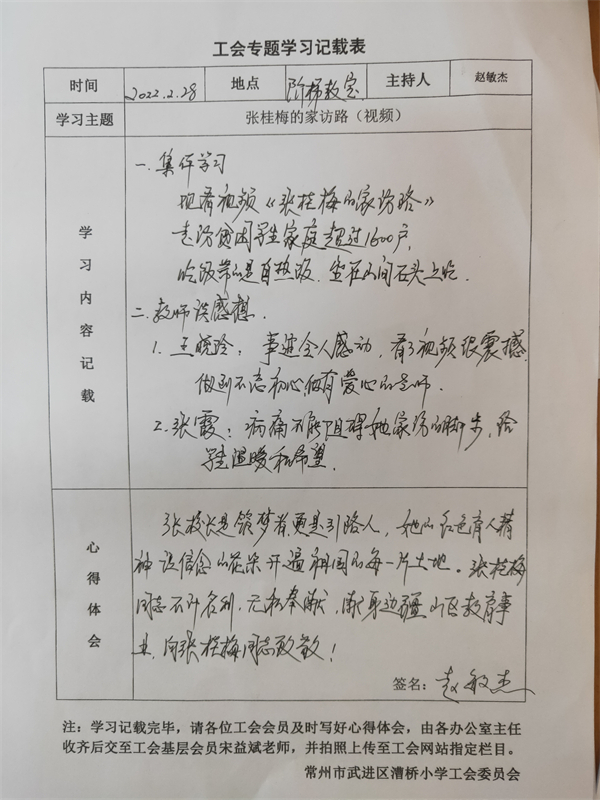 工会专题学习记载表
时间 2022.2.28 地点 阶梯教室 主持人 赵敏杰
学习主题 张桂梅的家访路（视频）
学习内容记载
一.集体学习
观看视频《张桂梅的家访路》
走访贫困学生家庭超过1600户,
吃饭带的是自热饭.坐在山间石头上吃.
二.教师谈感想.
1.王晓玲：事迹令人感动，看了视频很震撼,
做到不忘初心,做有爱心的老师.
2.张霞：病痛不能阻碍她家访的脚步,给
学生温暖和希望.
心得体会
张校长是筑梦者,更是引路人，她的红色育人精
神让信念的花朵开遍祖国的每一片土地。张桂梅
同志不计名利,无私奉献,献身边疆山区教育事
业,向张桂梅同志致敬！
签名：赵敏杰
注：学习记载完毕，请各位工会会员及时写好心得体会，由各办公室主任
收齐后交至工会基层会员宋益斌老师，并拍照上传至工会网站指定栏目。
常州市武进区漕桥小学工会委员会